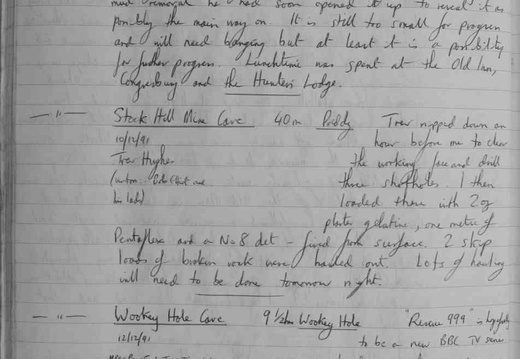 mud removal he had soon opened it up to reveal it as
possibly the main way on. It is still too small for progress
and will need banging but at least it is a possibility
for further progress. Lunchtime was spent at the Old Inn,
Congresbury and the Hunters Lodge.
— " — Stock Hill Mine Cave 40m Priddy Trev nipped down an
10/12/91 hour before me to clear
Trev Hughes the working face and drill
three shotholes. I then
loaded these with 2oz
plaster gelatine, one metre of
Pentaflex and a No 8 det - fired from surface. 2 skip
loads of broken rock were hauled out. Lots of hauling
will need to be done tomorrow night.
— " — Wookey Hole Cave 9 1/2hrs Wookey Hole "Rescue 999" is hopefully
12/12/91 to be a new BBC TV series